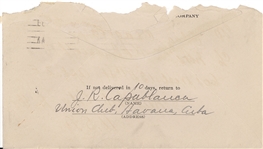 COMPANY
If not delivered in 10 days, return to
J. R. Capablanca
(NAME)
Union Club, Havana Cuba
(ADDRESS)